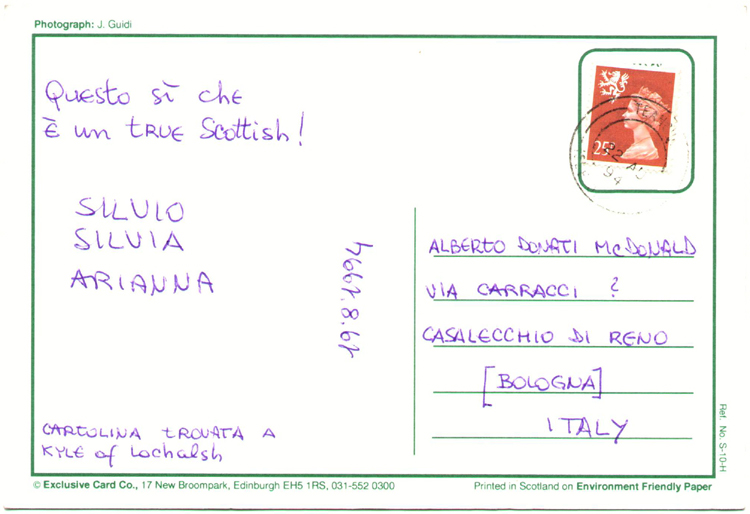 Photograph: J. Guidi
Questo sì che
È un TRUE Scottish!
SILVIO
SILVIA
ARIANNA
19.8.1994
CARTOLINA TROVATA A
KYLE of Lochalsh
25
94
ALBERTO DONATI McDONALD
VIA CARRACCI ?
CASALECCHIO DI RENO
[BOLOGNA]
ITALY
Ref. No. S-10-H
© Exclusive Card Co., 17 New Broompark, Edinburgh EH5 1RS, 031-552 0300
Printed in Scotland on Environment Friendly Paper